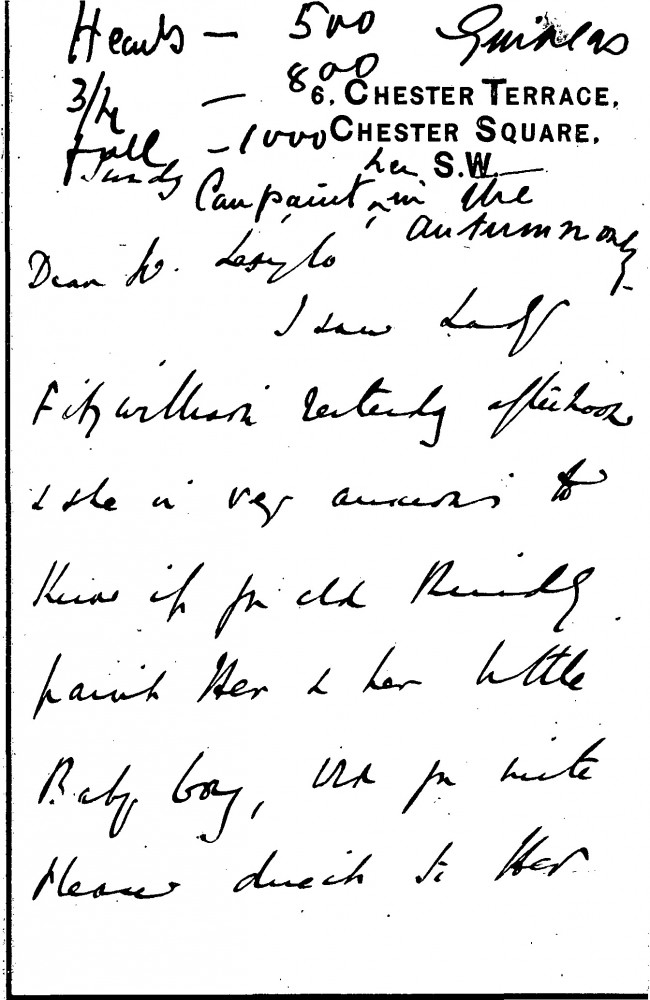 Heads — 500 Guineas
3/4 — 800
6, CHESTER TERRACE,
full — 1000
CHESTER SQUARE,
S.W.
Can paint her in the
autumn only
Dear Mr. Laszlo
I saw Lady
Fitzwilliam yesterday afternoon
& she is very anxious to
Know if you cld Kindly
paint Her & her little
Baby boy, wld you write
Please direct to Her